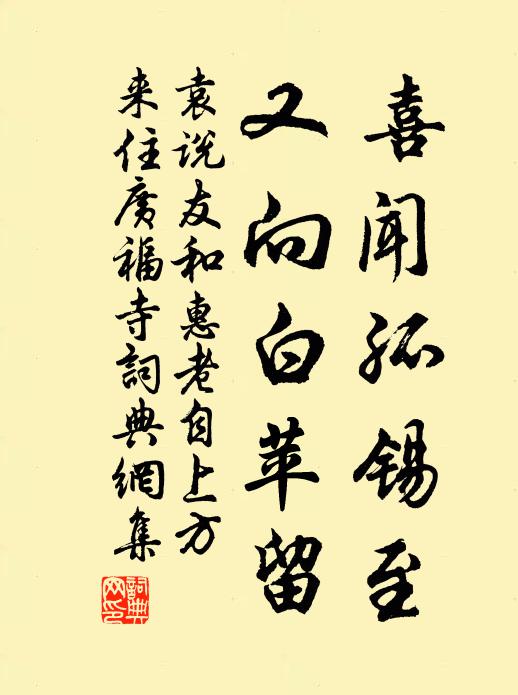 喜闻孤锡至
又向白苹留
袁说友和惠老自上方
来住广福寺詞典網集
詞典网印